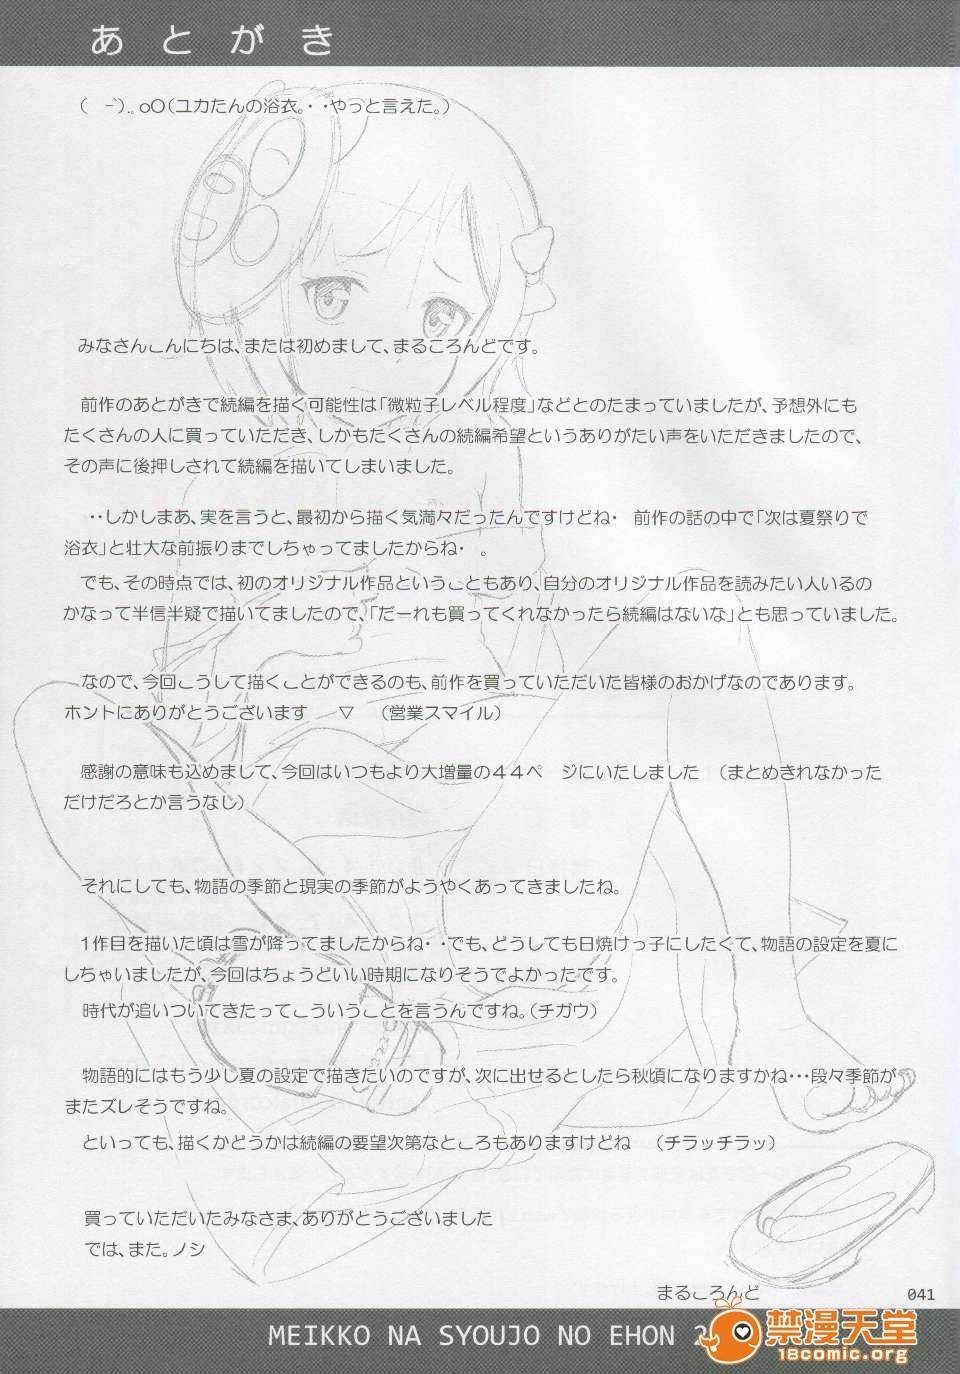 あとがき
(　-`).｡oO(ユカたんの浴衣。･･やっと言えた。)
みなさんこんにちは、または初めまして、まるころんどです。
前作のあとがきで続編を描く可能性は「微粒子レベル程度」などとのたまっていましたが、予想外にも
たくさんの人に買っていただき、しかもたくさんの続編希望というありがたい声をいただきましたので、
その声に後押しされて続編を描いてしまいました。
･･しかしまあ、実を言うと、最初から描く気満々だったんですけどね･　前作の話の中で「次は夏祭りで
浴衣」と壮大な前振りまでしちゃってましたからね･　。
でも、その時点では、初のオリジナル作品ということもあり、自分のオリジナル作品を読みたい人いるの
かなって半信半疑で描いてましたので、「だーれも買ってくれなかったら続編はないな」とも思っていました。
なので、今回こうして描くことができるのも、前作を買っていただいた皆様のおかげなのであります。
ホントにありがとうございます　▽　(営業スマイル)
感謝の意味も込めまして、今回はいつもより大増量の４４ペ　ジにいたしました　(まとめきれなかった
だけだろとか言うなし)
それにしても、物語の季節と現実の季節がようやくあってきましたね。
1作目を描いた頃は雪が降ってましたからね･･でも、どうしても日焼けっ子にしたくて、物語の設定を夏に
しちゃいましたが、今回はちょうどいい時期になりそうでよかったです。
時代が追いついてきたってこういうことを言うんですね。(チガウ)
物語的にはもう少し夏の設定で描きたいのですが、次に出せるとしたら秋頃になりますかね･･･段々季節が
またズレそうですね。
といっても、描くかどうかは続編の要望次第なところもありますけどね　(チラッチラッ)
買っていただいたみなさま、ありがとうございました
では、また。ノシ
まるころんど
041
MEIKKO NA SYOUJO NO EHON 2
禁漫天堂
18comic.org